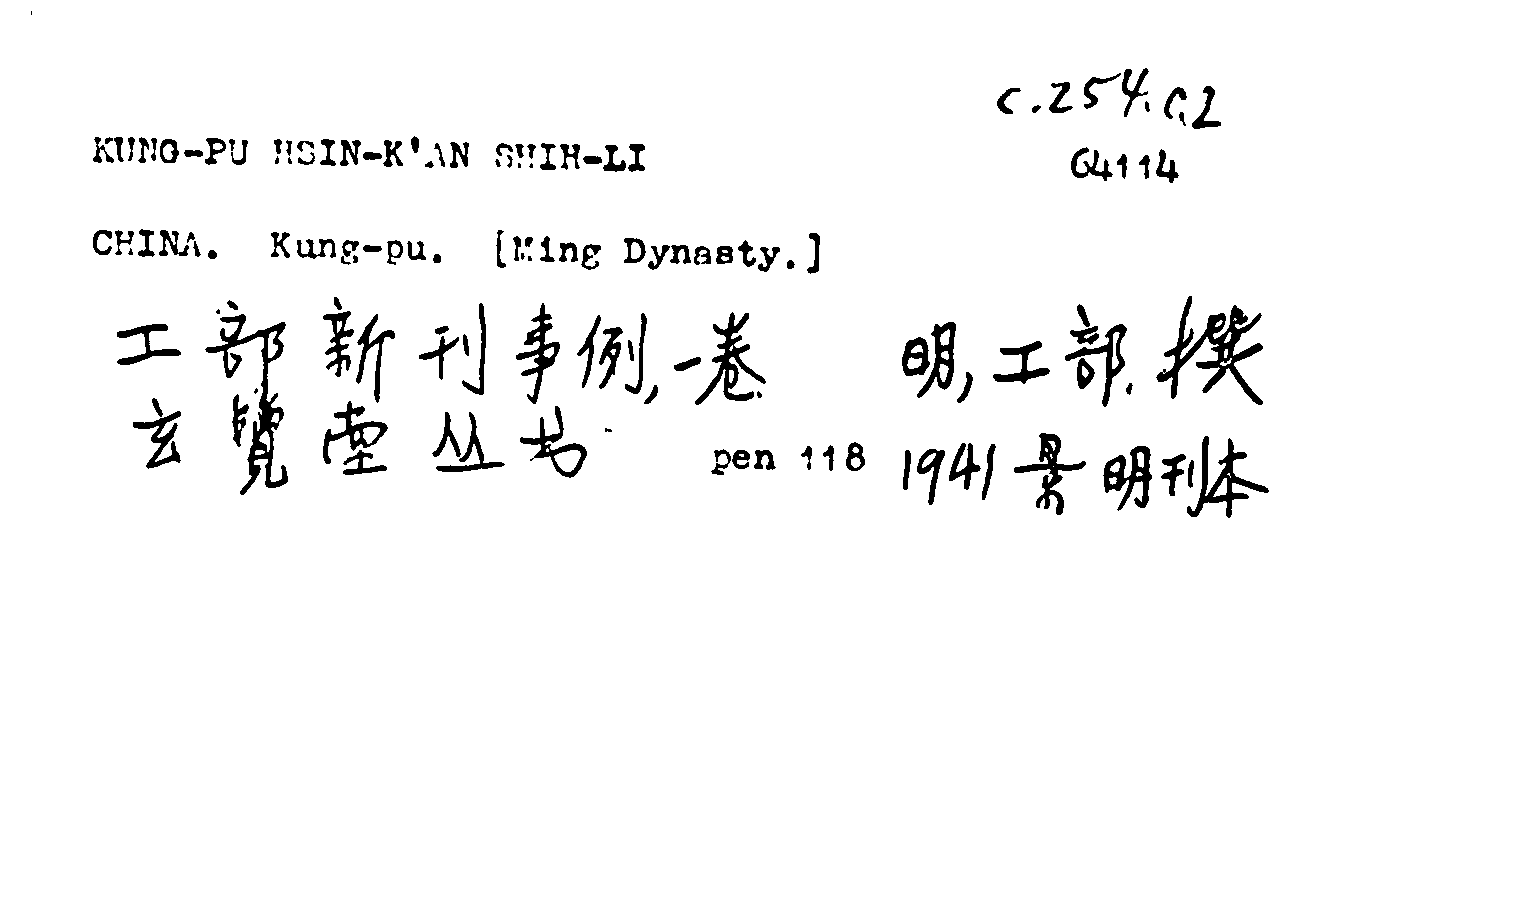 c.254.c.2
KUNG-PU HSIN-K'AN SHIH-LI
G4114
CHINA. Kung-pu. [Ming Dynasty.]
工部新刊事例, 一卷 明, 工部. 撰
玄覽堂丛书 pen 118 1941 景明刊本